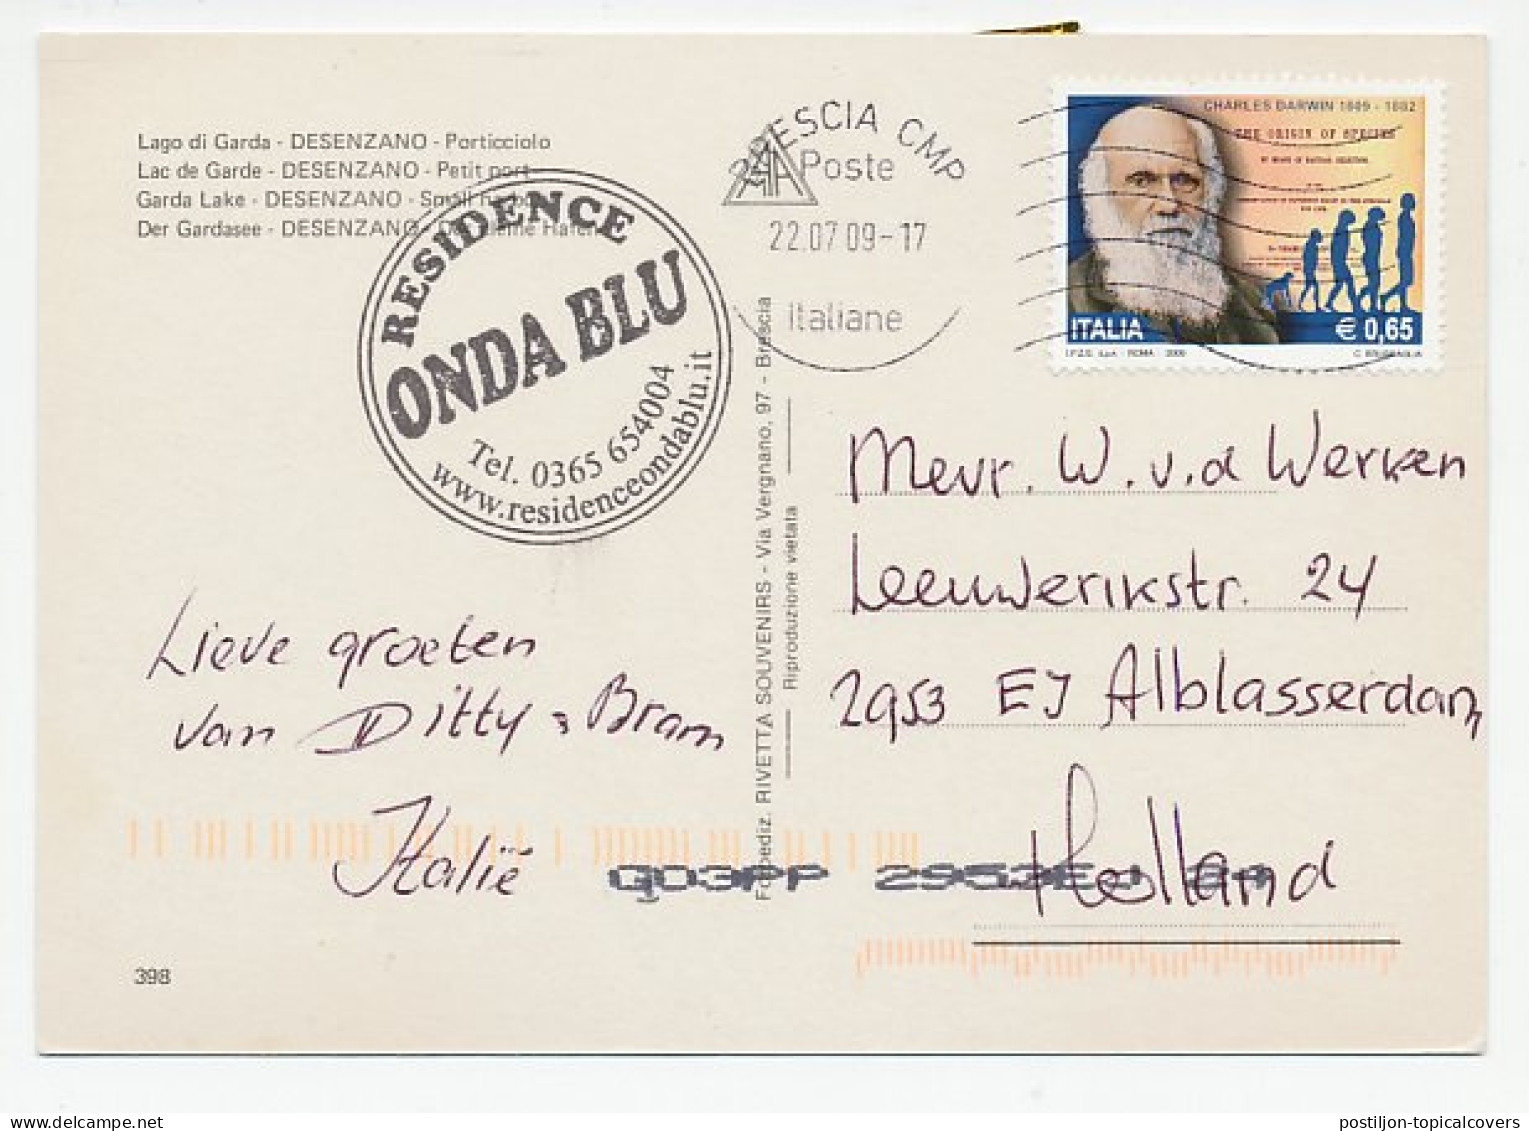 Lago di Garda - DESENZANO - Porticciolo
Lac de Garde - DESENZANO - Petit port
Garda Lake - DESENZANO - Small harbour
Der Gardasee - DESENZANO - Der kleine Hafen
RESIDENCE
ONDA BLU
Tel. 0365 654004
www.residenceondablu.it
BRESCIA CMP
Poste
22.07 09-17
italiane
CHARLES DARWIN 1809 - 1882
THE ORIGIN OF SPECIES
BY MEANS OF NATURAL SELECTION,
ITALIA
€ 0,65
I.P.Z.S. S.p.A. - ROMA 2009
Mevr. W. v. d Werken
Leeuwerikstr. 24
2953 EJ Alblasserdam
Holland
Lieve groeten
van Ditty & Bram
Italië
Fotoediz. RIVETTA SOUVENIRS - Via Vergnano, 97 - Brescia
Riproduzione vietata
Q03PP 2953EJ 24
398
postiljon-topicalcovers